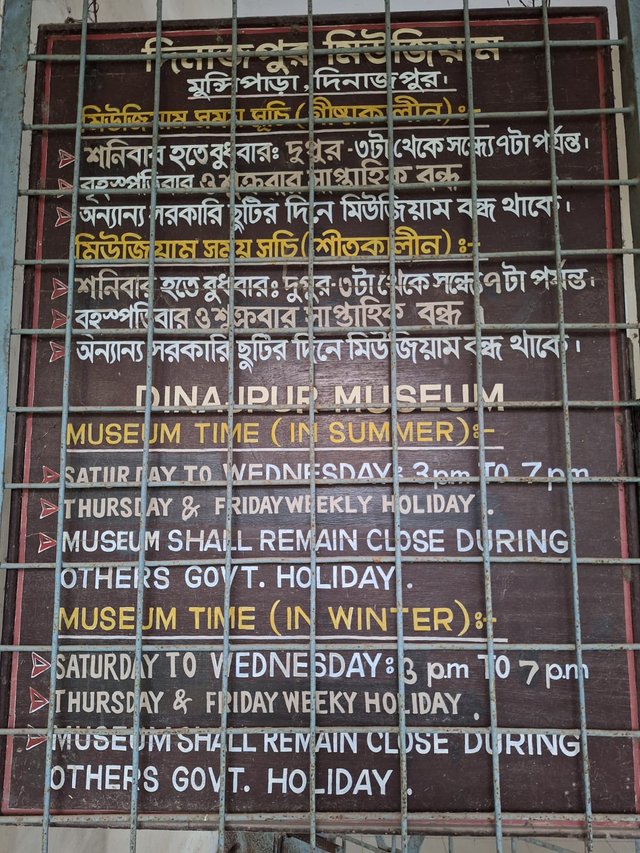 দিনাজপুর মিউজিয়াম
মুন্সিপাড়া, দিনাজপুর।
মিউজিয়াম সময় সূচি (গ্রীষ্মকালীন) ঃ-
শনিবার হতে বুধবারঃ দুপুর -৩টা থেকে সন্ধ্যে ৭টা পর্যন্ত।
বৃহস্পতিবার ও শুক্রবার সাপ্তাহিক বন্ধ
অন্যান্য সরকারি ছুটির দিনে মিউজিয়াম বন্ধ থাকে।
মিউজিয়াম সময় সূচি (শীতকালীন) ঃ-
শনিবার হতে বুধবারঃ দুপুর-৩টা থেকে সন্ধ্যে ৭টা পর্যন্ত।
বৃহস্পতিবার ও শুক্রবার সাপ্তাহিক বন্ধ
অন্যান্য সরকারি ছুটির দিনে মিউজিয়াম বন্ধ থাকে।
DINAJPUR MUSEUM
MUSEUM TIME (IN SUMMER) :-
SATURDAY TO WEDNESDAY: 3 pm TO 7 p.m
THURSDAY & FRIDAY WEEKLY HOLIDAY .
MUSEUM SHALL REMAIN CLOSE DURING
OTHERS GOVT. HOLIDAY .
MUSEUM TIME (IN WINTER) :-
SATURDAY TO WEDNESDAY: 3 p.m TO 7 p.m
THURSDAY & FRIDAY WEEKY HOLIDAY .
MUSEUM SHALL REMAIN CLOSE DURING
OTHERS GOVT. HOLIDAY .